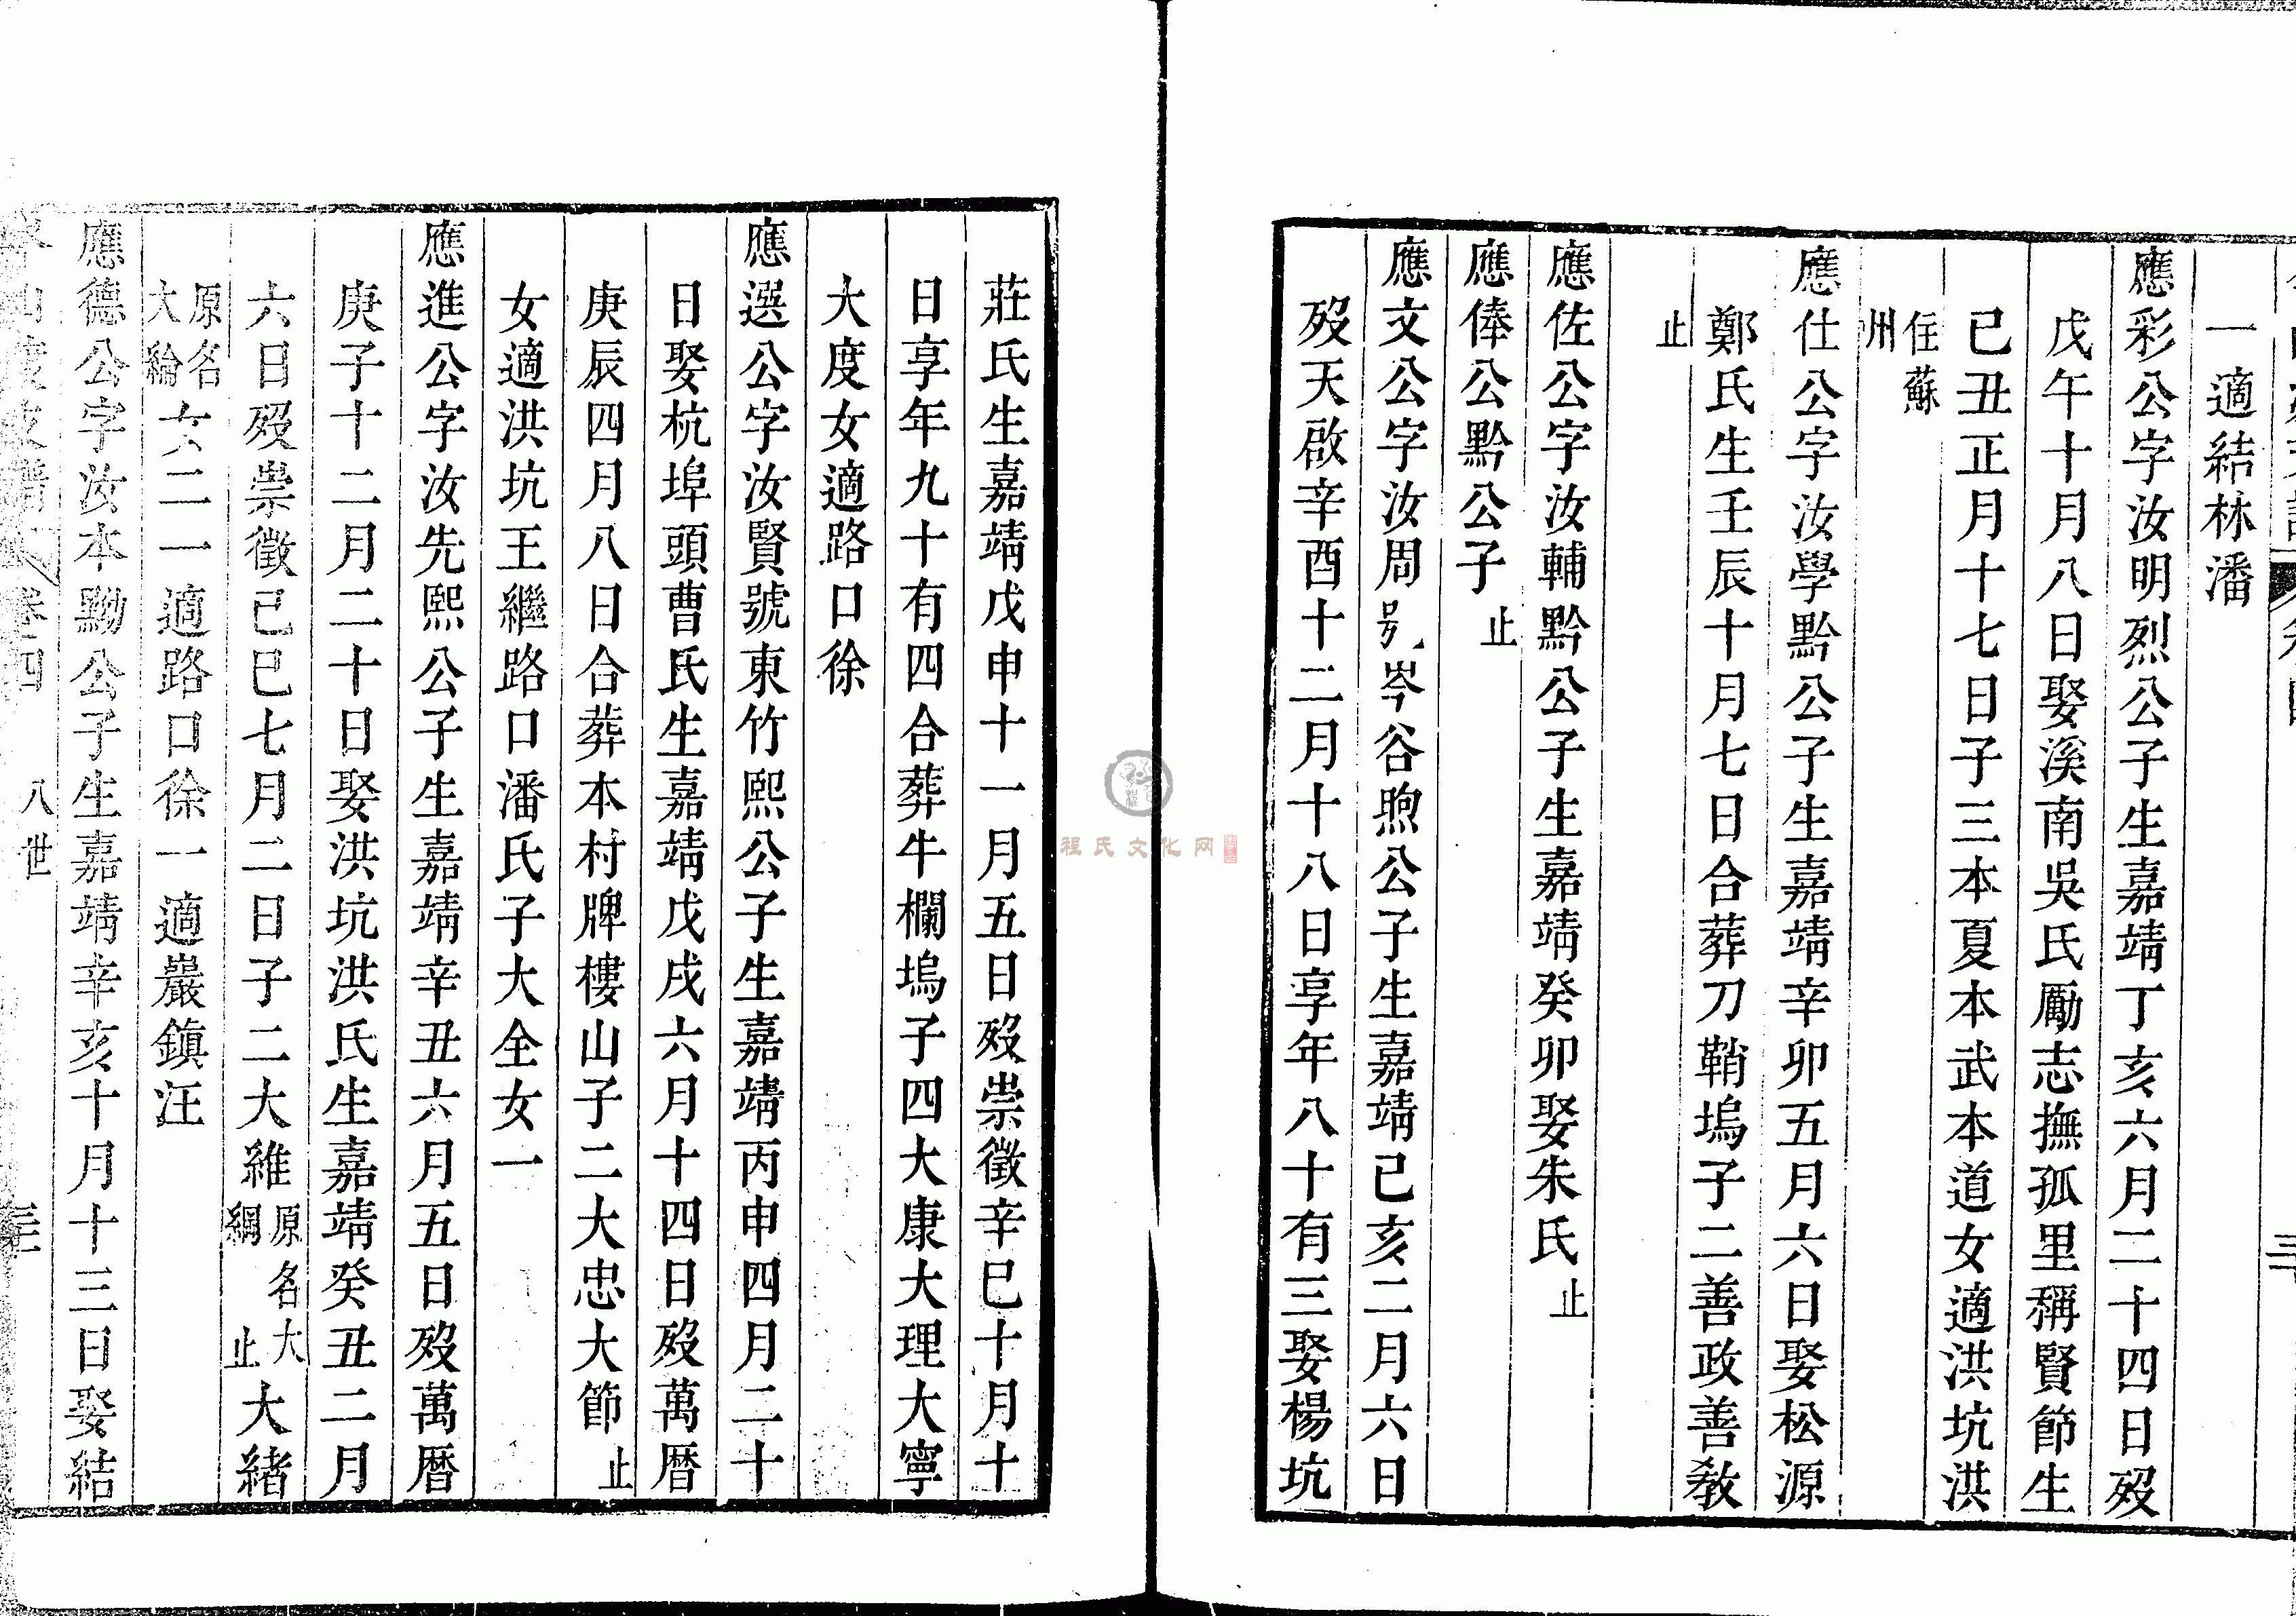 一適結林潘
應彩公字汝明烈公子生嘉靖丁亥六月二十四日歿
戊午十月八日娶溪南吳氏勵志撫孤里稱賢節生
已丑正月十七日子三本夏本武本道女適洪坑洪
住蘇
州
應仕公字汝學黔公子生嘉靖辛卯五月六日娶松源
鄭氏生壬辰十月七日合葬刀鞘塢子二善政善教
止
應佐公字汝輔黔公子生嘉靖癸卯娶朱氏止
應俸公黔公子止
應文公字汝周号岑谷煦公子生嘉靖己亥二月六日
歿天啟辛酉十二月十八日享年八十有三娶楊坑
莊氏生嘉靖戊申十一月五日歿崇徵辛巳十月十
日享年九十有四合葬牛欄塢子四大康大理大寧
大度女適路口徐
應選公字汝賢號東竹熙公子生嘉靖丙申四月二十
日娶杭埠頭曹氏生嘉靖戊戌六月十四日歿萬曆
庚辰四月八日合葬本村牌樓山子二大忠大節止
女適洪坑王繼路口潘氏子大全女一
應進公字汝先熙公子生嘉靖辛丑六月五日歿萬曆
庚子十二月二十日娶洪坑洪氏生嘉靖癸丑二月
六日歿崇徵己巳七月二日子二大維原名大綱止大緒
原名大綸女二一適路口徐一適巖鎮汪
應德公字汝本黝公子生嘉靖辛亥十月十三日娶結
卷四 八世
程氏文化网